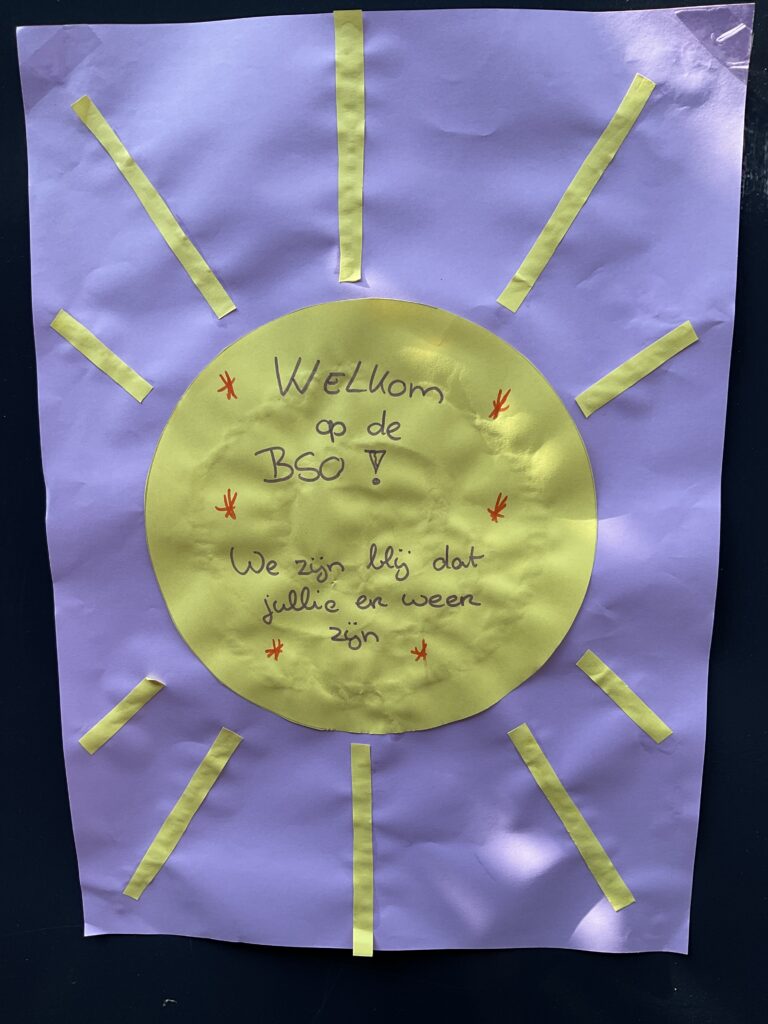 WELKom
op de
BSO!
We zijn blij dat
jullie er weer
zijn